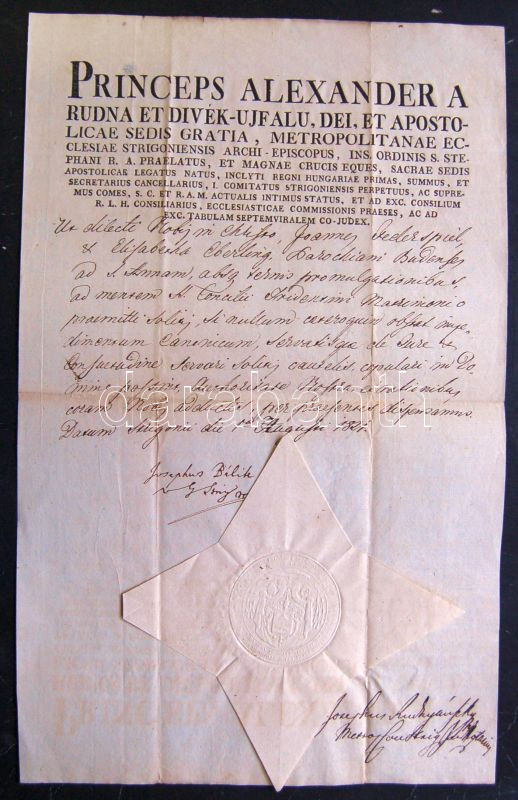 PRINCEPS ALEXANDER A
RUDNA ET DIVÉK-UJFALU, DEI, ET APOSTO-
LICAE SEDIS GRATIA, METROPOLITANAE EC-
CLESIAE STRIGONIENSIS ARCHI-EPISCOPUS, INS. ORDINIS S. STE-
PHANI R. A. PRAELATUS, ET MAGNAE CRUCIS EQUES, SACRAE SEDIS
APOSTOLICAE LEGATUS NATUS, INCLYTI REGNI HUNGARIAE PRIMAS, SUMMUS, ET
SECRETARIUS CANCELLARIUS, I. COMITATUS STRIGONIENSIS PERPETUUS, AC SUPRE-
MUS COMES, S. C. ET R. A. M. ACTUALIS INTIMUS STATUS, ET AD EXC. CONSILIUM
R. L. H. CONSILIARIUS, ECCLESIASTICAE COMMISSIONIS PRAESES, AC AD
EXC. TABULAM SEPTEMVIRALEM CO-JUDEX.
Ut dilecti Nobis in Christo, Joannes Federspiel,
& Elisabetha Eberling, Parochiani Budenses
ad S. Annam, absq ternis promulgationibus,
ad mentem S. Concilii Tridentini Matrimonio
praemitti solitis, si nullum caeteroquin obstet impe-
dimentum Canonicum, servatisque de Jure &
Consuetudine servari solitis cautelis, copulari in Do-
mino possint, Authoritate Nostra
coram Nobis adductis, per praesentes dispensamus.
Datum Strigonii die 1ma Augusti
Josephus Bélik
darabanth
Josephus